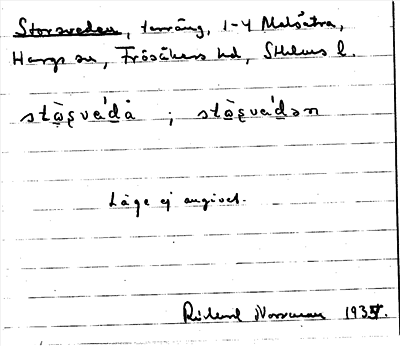 Storsveden, terräng, 1-4 Melsätra,
Hargs sn, Frösåkers hd, Sthlms l.
stɷ̀ʂveˊdå ; stɷ̀ʂveˊdən
Läge ej angivet.
Rickard Norrman 1935.